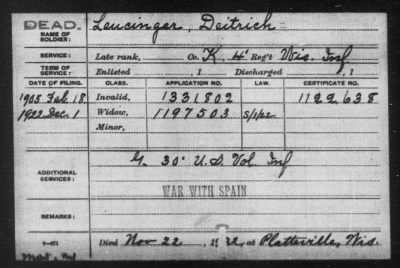 DEAD. Leucinger, Deitrich
NAME OF SOLDIER:
SERVICE: Late rank, Co. K. 4" Reg't Wis. Inf
TERM OF SERVICE: Enlisted , 1 Discharged , 1
DATE OF FILING. CLASS. APPLICATION NO. LAW. CERTIFICATE NO.
1905 Feb. 18 Invalid, 1331802 1122638
1922 Dec. 1 Widow, 1197503 5/1/22
Minor,
ADDITIONAL SERVICES: G. 30" U S Vol. Inf
WAR WITH SPAIN
REMARKS:
Died Nov 22, 1922, at Platteville, Wis.